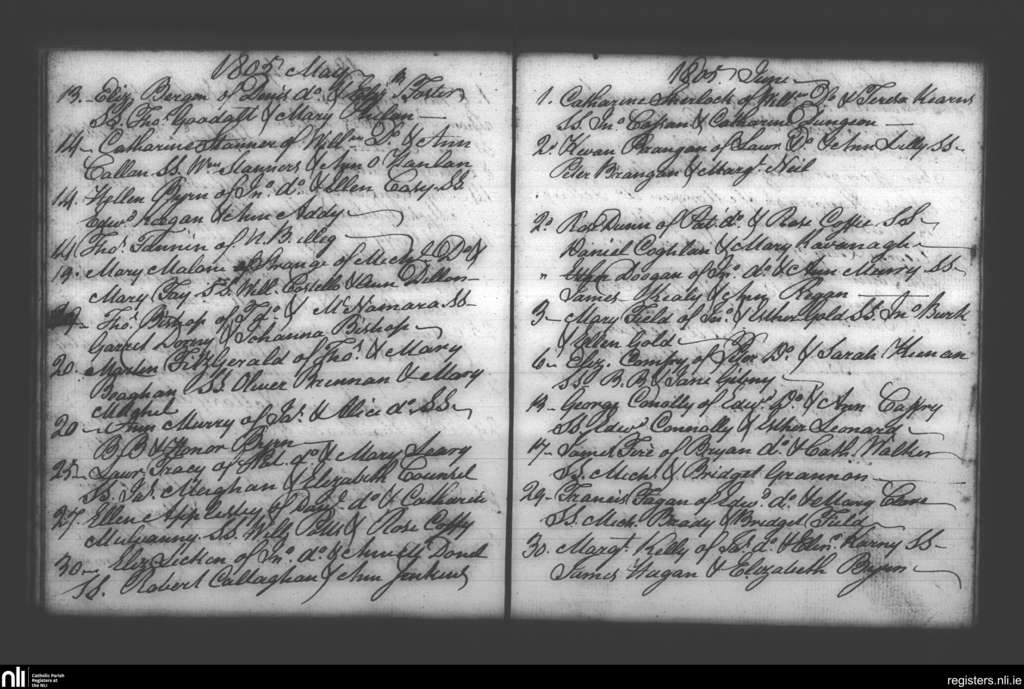 1805 May
13. Eliz Bergen of Lewis do. & Eliz Foster
SS. Thos. Goodatt & Mary Phelan
14 - Catharine Manner of Willm Do. & Ann
Callan SS. Wm Manners & Ann O Hanlan
14. Hellen Byrn of Jno. do. & Ellen Casy SS
Edwd Keegan & Ann Addy
14 Thos. Fannin of N. Billey
19. Mary Malone of Michel Do &
Mary Fay SS. Will. Costello & Ann Dillon
Thos. Bishop of & McNamara SS
Garret Dorny & Johanna Bishop
20. Marten FitzGerald of Thos. & Mary
Braghan SS Oliver Brennan & Mary
Meghel
20 - Ann Murry of Jas. & Alice do. SS
B.B & Honor Byrn
25 - Lawr. Tracy of do & Mary Leary
SS. Jas. Meighan & Elizabeth Counsel
27. Ellen Appleshey of Danl. do & Catharine
Mulvanny SS. Will. Potts & Rose Coffy
30 - Eliz of Jno. do. & Dond
SS. Robert Callaghan & Ann Jenkins
1805. June
1. Catharine Sherlock of Willm Do & Teresa Kearns
SS. Jno. Cassan & Catharin Dungeon
2. Kwan Brangan of Lawr. Do & Ann Lilly SS -
Peter Brangan & Margt. Neil
2. Ros Dunn of Pat. do. & Rose Coffee SS
Daniel Coghlan & Mary Kavanagh
" Doogan of Jno. do & Ann Murry SS
James Healy & Ann Regan
3 - Mary Field of Jno. & Esther Gold SS. Jno. Burk
& Ellen Gold
6 - Eliz. of Do. & Sarah Keenan
SS. B. B & Jane Gibny
13 - George Conolly of Edwd. Do & Ann Caffry
SS. Edwd Connolly & Esther Leonard
17 - James of Bryan do. & Cath. Walker
SS. Mich. & Bridget Grannon
29 - Francis Fagan of Edwd. do. & Mary
SS. Mich. Brady & Bridget Field
30. Margt. Kelly of Jas. do. & Elinr. Karny SS -
James Hagan & Elizabeth Byrn
nli
Catholic Parish
Registers at
the NLI
registers.nli.ie